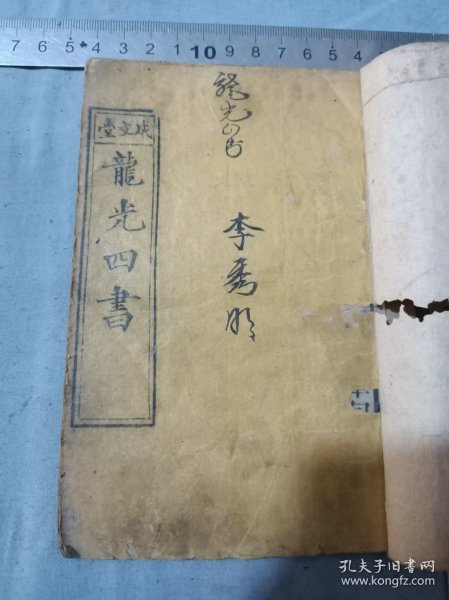 7 6 5 4 3 2 1 10 9 8 7 6 5 4 3 2
成文堂
龍光四書
龍光四书
李秀明
孔夫子旧书网
www.kongfz.com